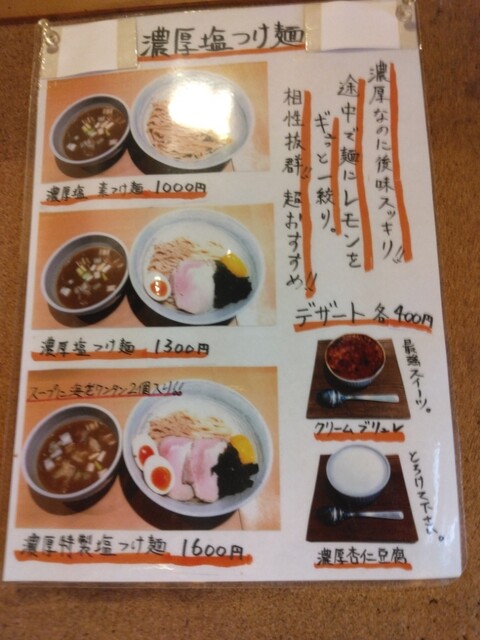 濃厚塩つけ麺
濃厚なのに後味スッキリ!!
途中で麺にレモンを
ギュッと一絞り。
相性抜群!! 超おすすめ!!
濃厚塩 素つけ麺 1000円
濃厚塩つけ麺 1300円
スープに海老ワンタン2個入り!!
濃厚特製塩つけ麺 1600円
デザート 各400円
最強スイーツ。
クリームブリュレ
とろけて下さい。
濃厚杏仁豆腐